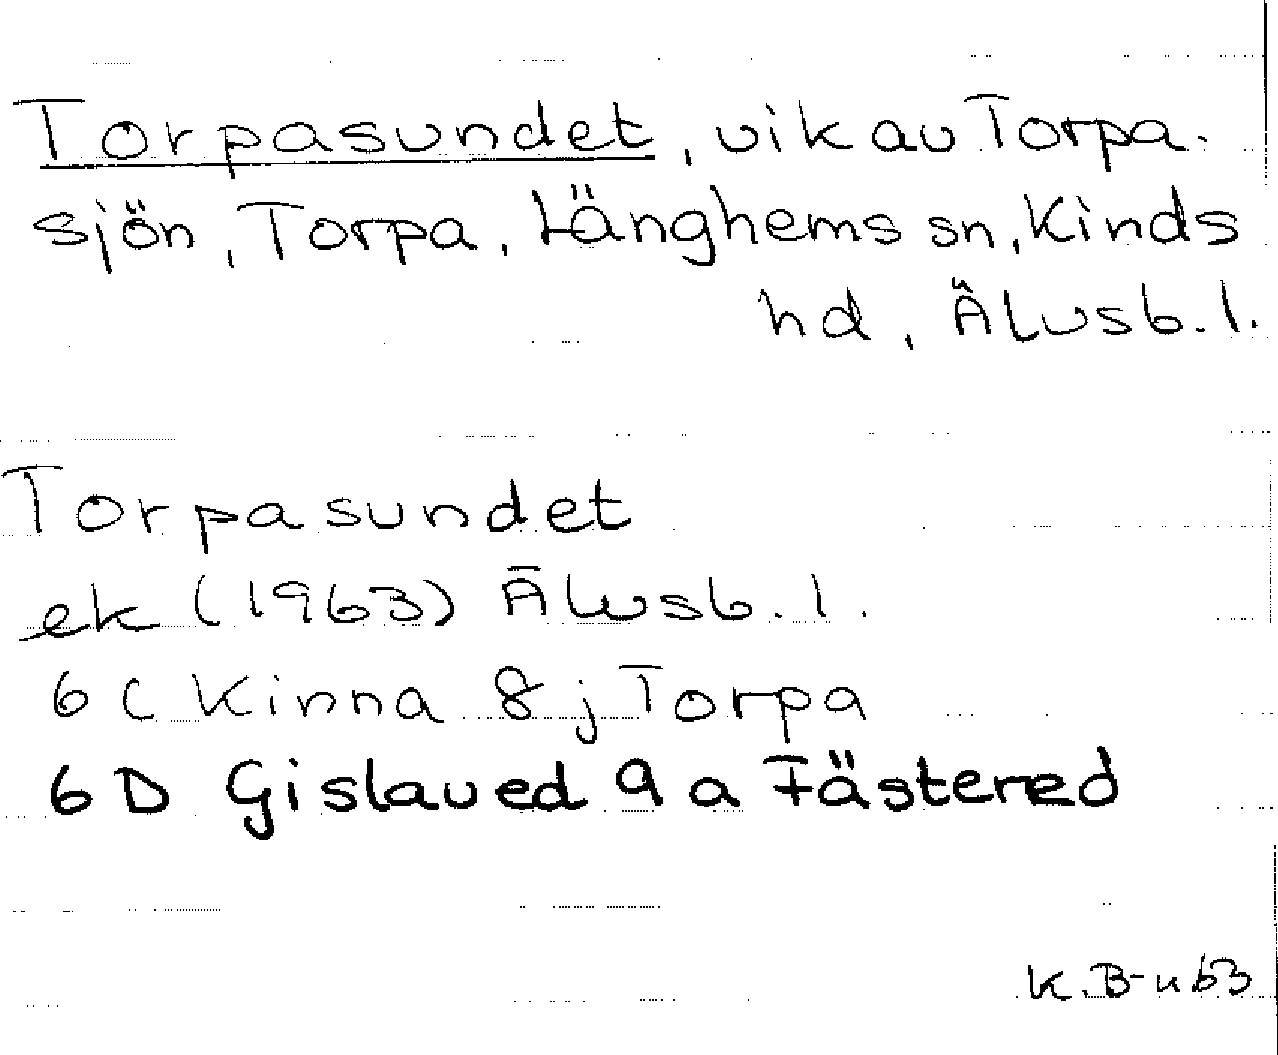 Torpasundet, vik av Torpa-
sjön, Torpa, Länghems sn, Kinds
hd, Älvsb. l.
Torpasundet
ek (1963) Älvsb. l.
6C Kinna 8j Torpa
6D Gislaved 9a Fästered
K.B-n 63